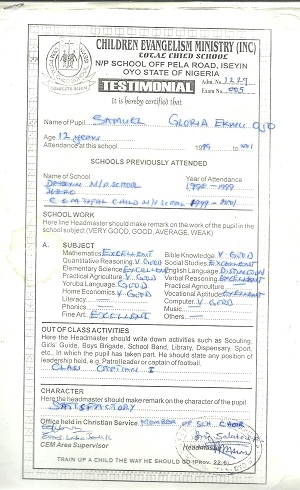 CHILDREN EVANGELISM MINISTRY (INC)
TOTAL CHILD SCHOOL
N/P SCHOOL OFF PELA ROAD, ISEYIN
OYO STATE OF NIGERIA
TESTIMONIAL
Adm. No. 1227
Exam No. 005
It is hereby certified that
Name of Pupil SAMUEL GLORIA
Age 12 YEARS
Attendance at this school 1999 to 2001
SCHOOLS PREVIOUSLY ATTENDED
Name of School Year of Attendance
N/P SCHOOL 1998-1999
C.E.M TOTAL CHILD N/P SCHOOL 1999-2001
SCHOOL WORK
Here line Headmaster should make remark on the work of the pupil in the
school subject (VERY GOOD, GOOD, AVERAGE, WEAK)
A. SUBJECT
Mathematics EXCELLENT Bible Knowledge V. GOOD
Quantitative Reasoning V. GOOD Social Studies EXCELLENT
Elementary Science EXCELLENT English Language DISTINCTION
Practical Agriculture V. GOOD Verbal Reasoning EXCELLENT
Yoruba Language GOOD Practical Agriculture
Home Economics V. GOOD Vocational Aptitude EXCELLENT
Literacy Computer V. GOOD
Phonics Music
Fine Art EXCELLENT Others
OUT OF CLASS ACTIVITIES
Here the Headmaster should write down activities such as Scouting,
Girls' Guide, Boys Brigade, School Band, Library, Dispensary, Sport,
etc.. In which the pupil has taken part. He should state any position of
leadership held, e.g. Patrol leader or captain of football.
CLASS CAPTAIN I
CHARACTER
Here the headmaster should make remark on the character of the pupil
SATISFACTORY
Office held in Christian Service MEMBER OF SCH CHOIR
CEM Area Supervisor Headmaster
TRAIN UP A CHILD THE WAY HE SHOULD GO (PROV. 22:6)